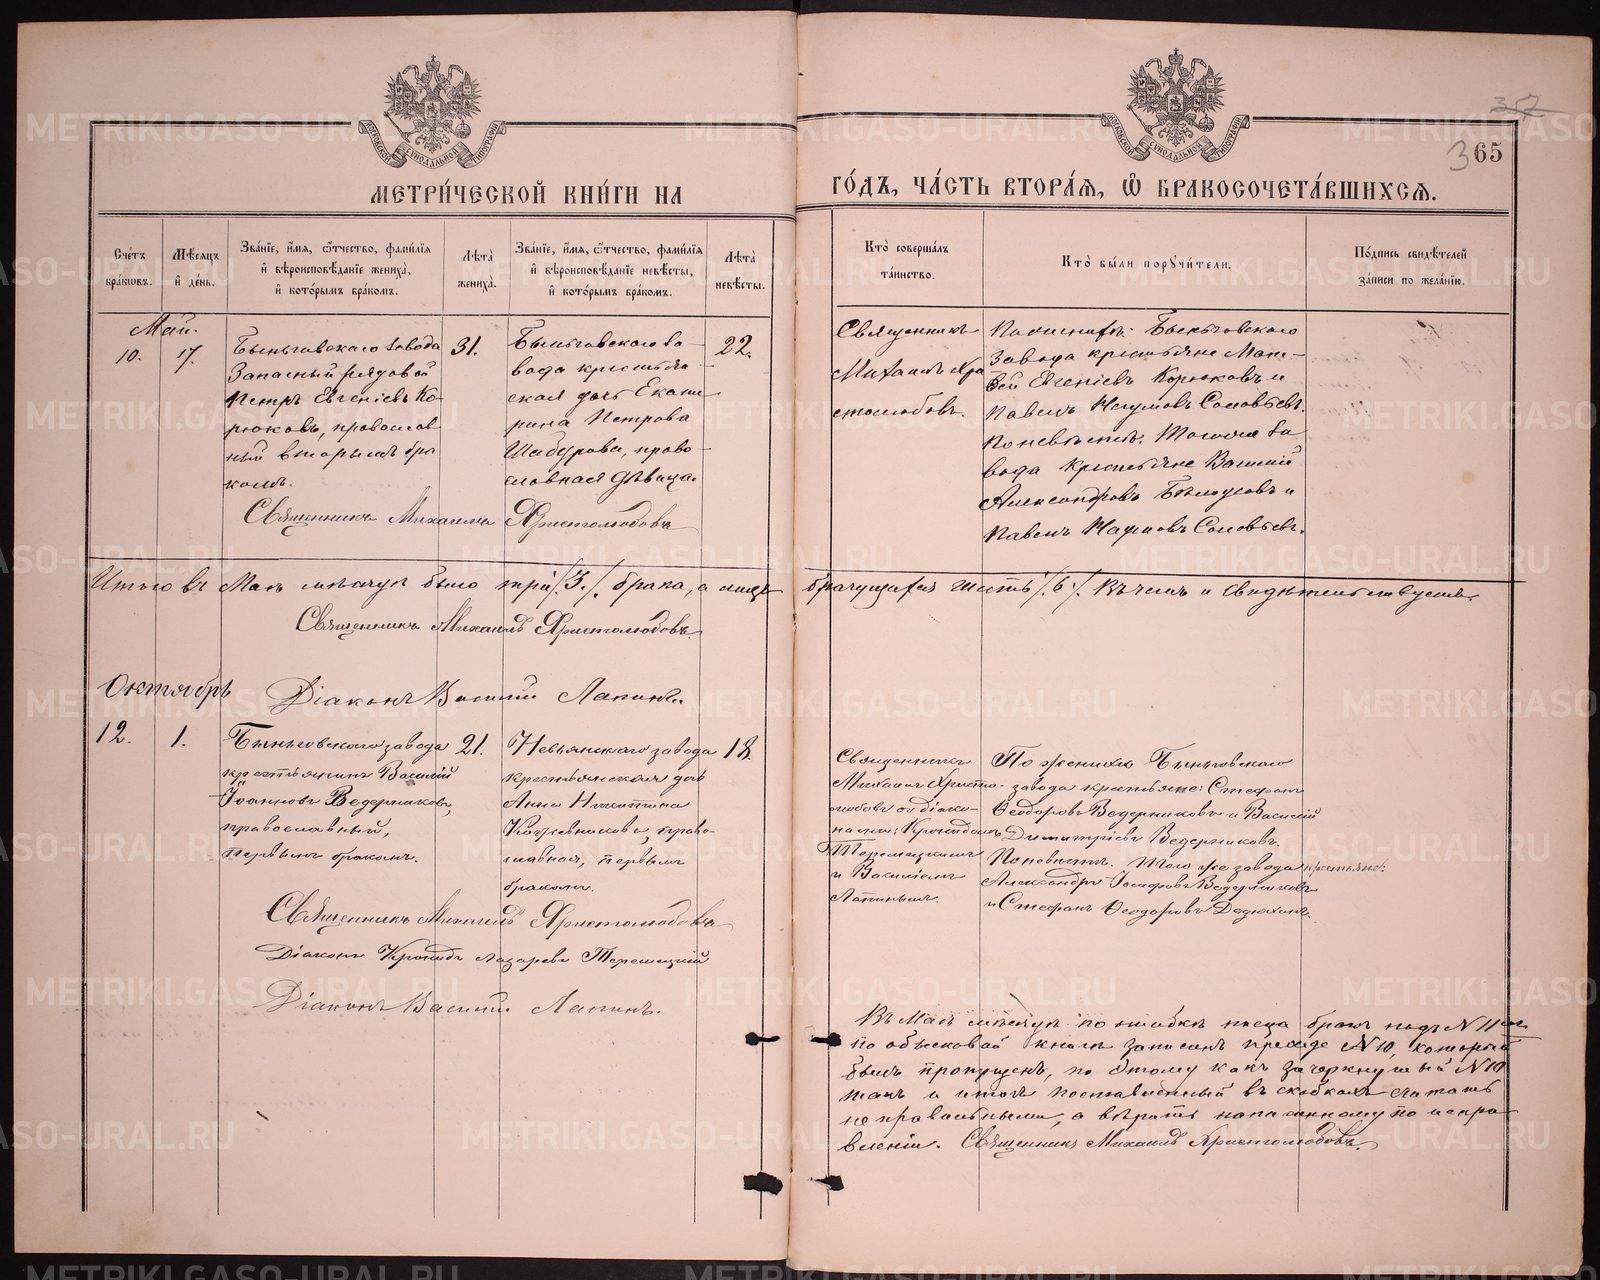 352
365
МОСКОВСКОЙ СѴНОДАЛЬНОЙ ТИПОГРАФІИ
МОСКОВСКОЙ СѴНОДАЛЬНОЙ ТИПОГРАФІИ
МЕТРИ́ЧЕСКОЙ КНИ́ГИ НА
ГО́ДЪ, ЧА́СТЬ ВТОРА́Я, Ѡ҆ БРАКОСОЧЕТА́ВШИХСЯ.
Сче́тъ
бра́ковъ.
Мѣ́сяцъ
и҆ де́нь.
Зва́нїе, и҆́мя, ѻ҆́тчество, фами́лїя
и҆ вѣроисповѣ́данїе жениха̀,
и҆ кото́рымъ бра́комъ.
Лѣ́та
жениха̀.
Зва́нїе, и҆́мя, ѻ҆́тчество, фами́лїя
и҆ вѣроисповѣ́данїе невѣ́сты,
и҆ кото́рымъ бра́комъ.
Лѣ́та
невѣ́сты.
Кто̀ соверша́лъ
та́инство.
Кто̀ бы́ли порꙋчи́тели.
По́дпись свидѣ́телей
за́писи по жела́нїю.
Май.
10.
17.
Быньговскаго завода
Запасный рядовой
Петръ Евгеніевъ Ко-
рюковъ, православ
ный вторымъ бра
комъ.
31.
Быньговскаго за-
вода крестьян-
ская дочь Екате-
рина Петрова
Шабурова, право-
славная дѣвица.
22.
Священникъ
Михаилъ Хри
столюбовъ.
По женихѣ: Быньговскаго
завода крестьяне Мат-
вей Евгеніевъ Корюковъ и
Павелъ Наумовъ Соловьевъ.
По невѣстѣ: Тогоже за
вода крестьяне Василій
Александровъ Бѣлоусовъ и
Павелъ Наумовъ Соловьевъ.
Священникъ Михаилъ Христолюбовъ
Итого въ Маѣ мѣсяцѣ было три /3./ брака, а лицъ
брачущихся шесть /.6./ Въ чемъ и свидѣтельствуемъ.
Священникъ Михаилъ Христолюбовъ.
Діаконъ Василій Лапинъ.
Октябрь
12.
1.
Быньговскаго завода
крестьянинъ Василій
Іоанновъ Ведерниковъ,
православный,
первымъ бракомъ.
21.
Невьянскаго завода
крестьянская дочь
Анна Никитина
Кожевникова, право-
славная, первымъ
бракомъ.
18.
Священникъ
Михаилъ Христо-
любовъ съ діако-
нами: Кронидомъ
Терешецкимъ
и Василіемъ
Лапинымъ.
По женихѣ Быньговскаго
завода крестьяне: Стефанъ
Ѳеодоровъ Ведерниковъ и Василій
Димитріевъ Ведерниковъ.
По невѣстѣ. Того же завода крестьяне:
Александръ Іосифовъ Ведерниковъ
и Стефанъ Ѳеодоровъ Дедюхинъ.
Священникъ Михаилъ Христолюбовъ
Діаконъ Кронидъ Лазаревъ Терешецкій
Діаконъ Василій Лапинъ.
Въ Маѣ мѣсяцѣ по ошибкѣ писца бракъ подъ N 11ым
по обыскной книгѣ записанъ прежде N 10, который
былъ пропущенъ, по этому какъ зачеркнутый N 10
такъ и итогъ поставленный въ скобкахъ считать
неправильными, а вѣрить написанному по испра-
вленіи. Священникъ Михаилъ Христолюбовъ.